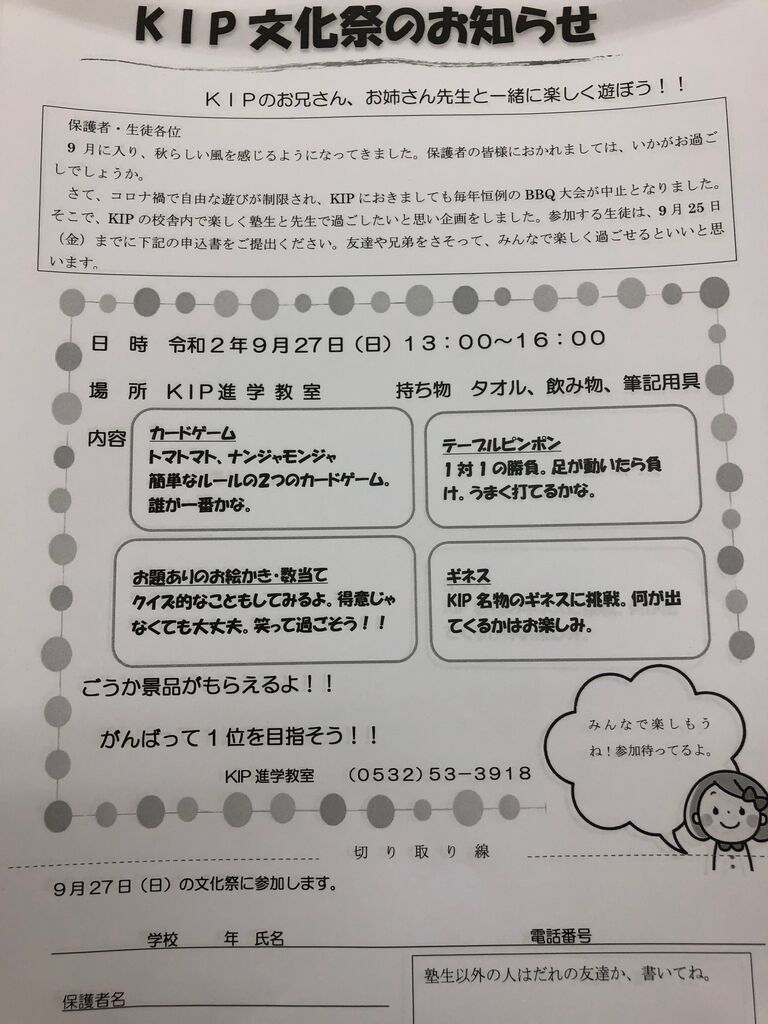 KIP文化祭のお知らせ
KIPのお兄さん、お姉さん先生と一緒に楽しく遊ぼう！！
保護者・生徒各位
9月に入り、秋らしい風を感じるようになってきました。保護者の皆様におかれましては、いかがお過ご
しでしょうか。
さて、コロナ禍で自由な遊びが制限され、KIPにおきましても毎年恒例のBBQ大会が中止となりました。
そこで、KIPの校舎内で楽しく塾生と先生で過ごしたいと思い企画をしました。参加する生徒は、9月25日
（金）までに下記の申込書をご提出ください。友達や兄弟をさそって、みんなで楽しく過ごせるといいと思
います。
日　時　令和2年9月27日（日）13：00～16：00
場　所　KIP進学教室　持ち物　タオル、飲み物、筆記用具
内容
カードゲーム
トマトマト、ナンジャモンジャ
簡単なルールの2つのカードゲーム。
誰が一番かな。
テーブルピンポン
1対1の勝負。足が動いたら負
け。うまく打てるかな。
お題ありのお絵かき・数当て
クイズ的なこともしてみるよ。得意じゃ
なくても大丈夫。笑って過ごそう！！
ギネス
KIP名物のギネスに挑戦。何が出
てくるかはお楽しみ。
ごうか景品がもらえるよ！！
がんばって1位を目指そう！！
KIP進学教室　（0532）53－3918
みんなで楽しもう
ね！参加待ってるよ。
切り取り線
9月27日（日）の文化祭に参加します。
学校　年　氏名　電話番号
保護者名
塾生以外の人はだれの友達か、書いてね。